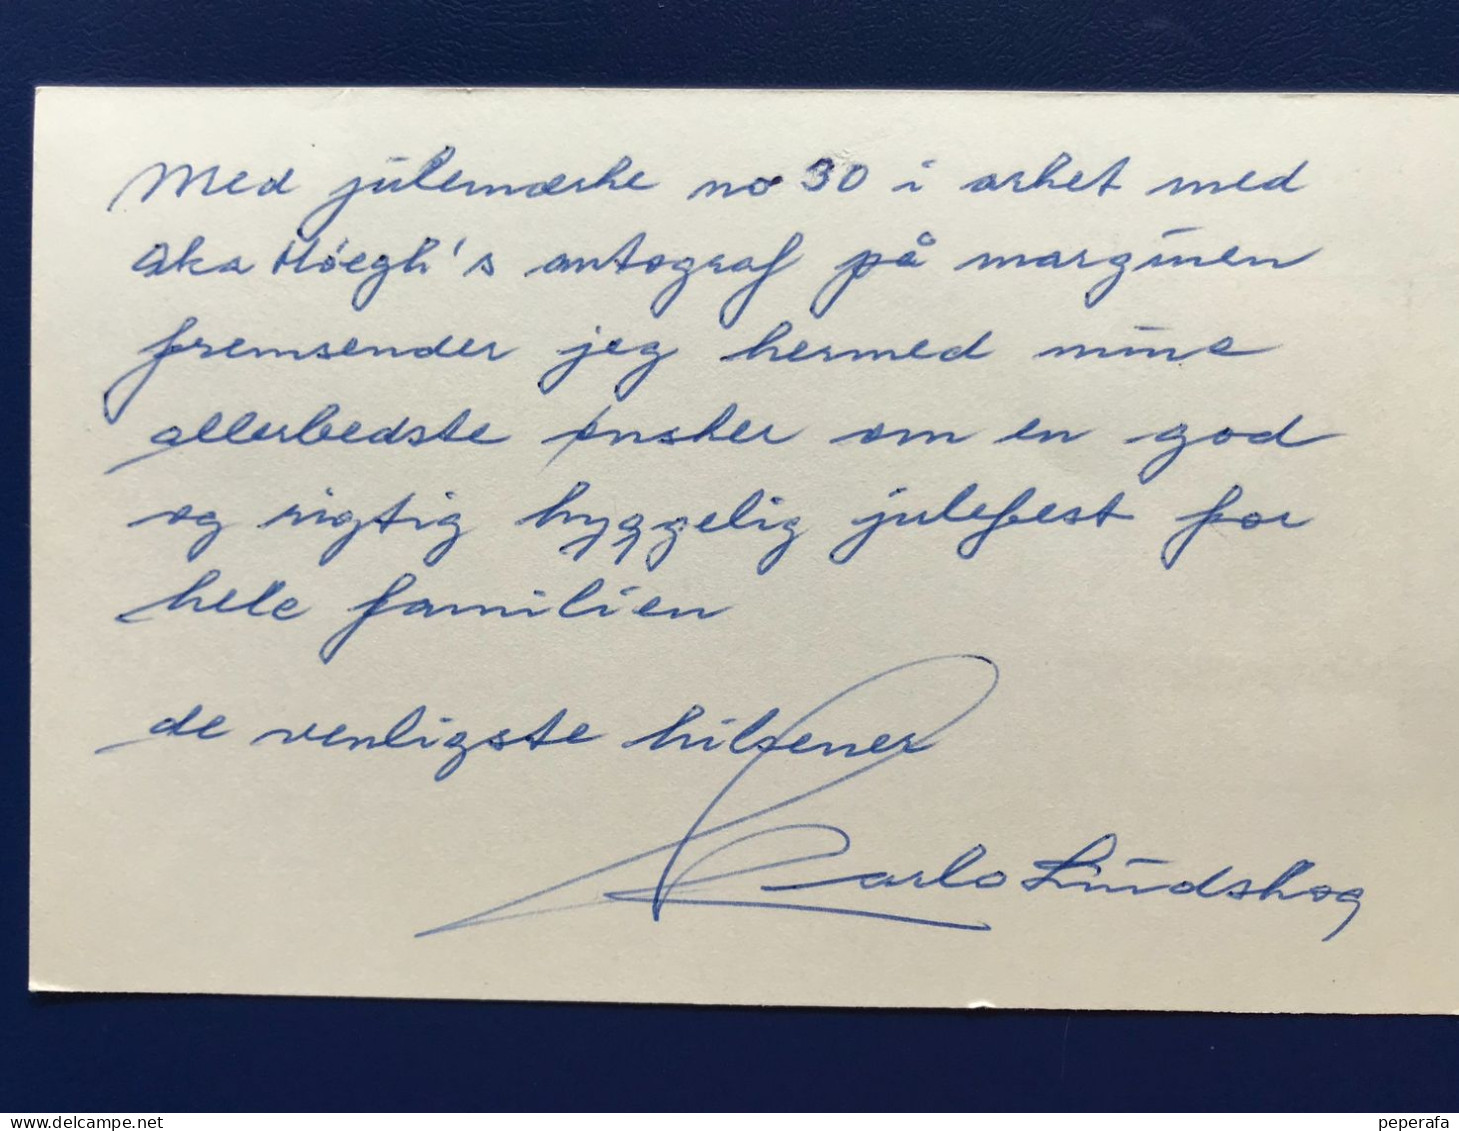 Med julemærke no 30 i arket med
Aka Höegh's autograf på marginen
fremsender jeg hermed mine
allerbedste ønsker om en god
og rigtig hyggelig julefest for
hele familien
de venligste hilsener
Carlo Lindskog
delcampe.net
peperafa